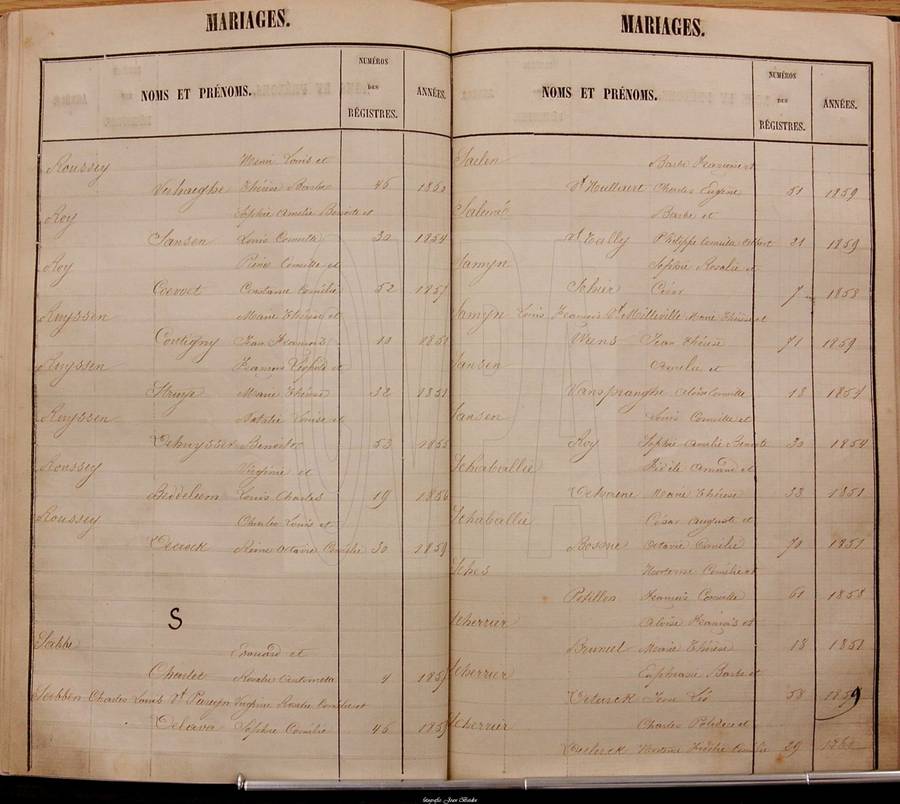 MARIAGES.
NOMS ET PRÉNOMS.
NUMÉROS
DES
RÉGISTRES.
ANNÉES.
Roussey Henri Louis et
Verhaeghe Thérèse Barbe 46 1860
Roy Sophie Amelie Benoite et
Sansen Louis Cornille 30 1854
Roy Pierre Cornille et
Coevoet Constance Cornélie 52 1857
Ruyssen Marie Thérèse et
Contigny Jean François 10 1851
Ruyssen François Léopold et
Struye Marie Thérèse 32
Ruyssen Natalie Louise et
Benoit 53 1855
Roussey Virginie et
Beddelem Louis Charles 19 1856
Roussey Charles Louis et
Decrock Reine Octavie Cornélie 30 1859
S
Edouard et
Charlet Rosalie 4
Charles Louis Vf Virginie Rosalie Cornélie et
Sophie Cornélie 46
MARIAGES.
NOMS ET PRÉNOMS.
NUMÉROS
DES
RÉGISTRES.
ANNÉES.
Saelen Barbe Françoise et
Charles Eugène 51 1859
Barbe et
Philippe Cornille 21 1859
Samyn Sophie Rosalie et
Schier César 7 1853
Samyn Louis François Vf Milleville Marie Thérèse et
Wens Jean Thérèse 71 1859
Sansen Amelie et
Vanspranghe 18 1854
Sansen Louis Cornille et
Roy Sophie Amelie Benoite 30 1854
Schaballie Fidèle Amand et
Dehaene Marie Thérèse 33 1851
Schaballie César Auguste et
Bosone Octavie Cornélie 70
Sches Hortense Cornélie et
Petillon François Cornille 61 1858
Scherrier Aloïse François et
Brunet Marie Thérèse 18 1851
Scherrier Euphrasie Barbe et
Deturck Jean Léo 58 1859
Scherrier Charles Polidore et
Declerck Fidélie Cornélie 29 1860